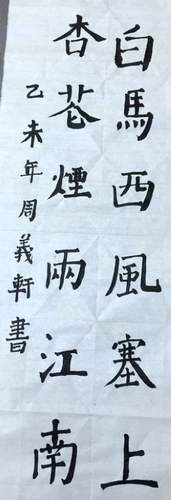 白馬西風塞上
杏花煙雨江南
乙未年周義軒書